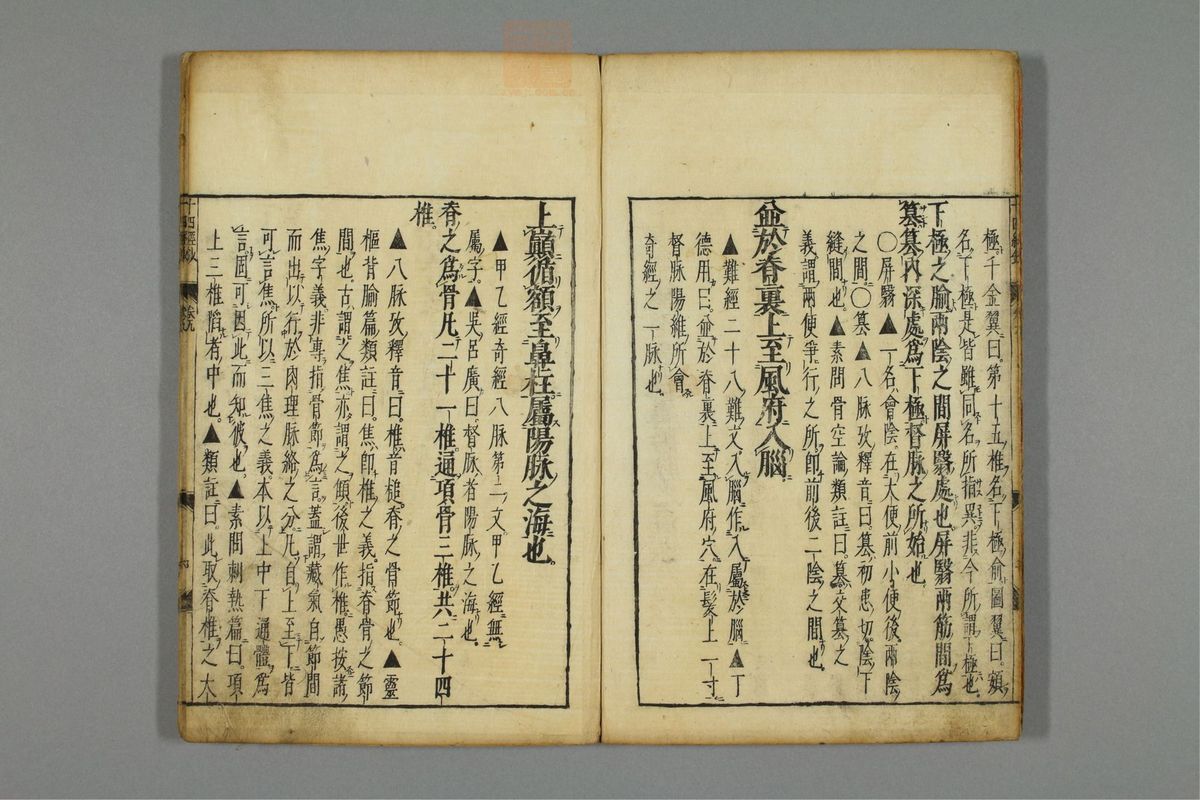 極千金翼曰第十五椎名下極俞圖翼曰額
名下極是皆雖同名所指異非今所謂下極也
下極之腧兩陰之間屏翳處也屏翳兩筋間為
篡篡內深處為下極督脉之所始也
〇屏翳▲一名會陰在大便前小便後兩陰
之間〇篡▲八脉攷釋音曰篡初患切陰下
縫間也▲素問骨空論類註曰篡交篡之
義謂兩便爭行之所即前後二陰之間也
並於脊裏上至風府入腦
▲難經二十八難文入腦作入屬於腦▲丁
德用曰並於脊裏上至風府穴在髮上一寸
督脉陽維所會
奇經之一脉也
上巔循額至鼻柱屬陽脉之海也
▲甲乙經奇經八脉第二文甲乙經無
屬字▲吳呂廣曰督脉者陽脉之海也
脊之為骨凡二十一椎通項骨三椎共二十四
椎
▲八脉攷釋音曰椎音槌脊之骨節也▲靈
樞背腧篇類註曰焦即椎之義指脊骨之節
間也古謂之焦亦謂之顀後世作椎愚按諸
焦字義非專指骨節為言蓋謂藏氣自節間
而出以行於肉理脉絡之分凡自上至下皆
可言焦所以三焦之義本以上中下通體為
言固可因此而知彼也▲素問刺熱篇曰項
上三椎陷者中也▲類註曰此取脊椎之大